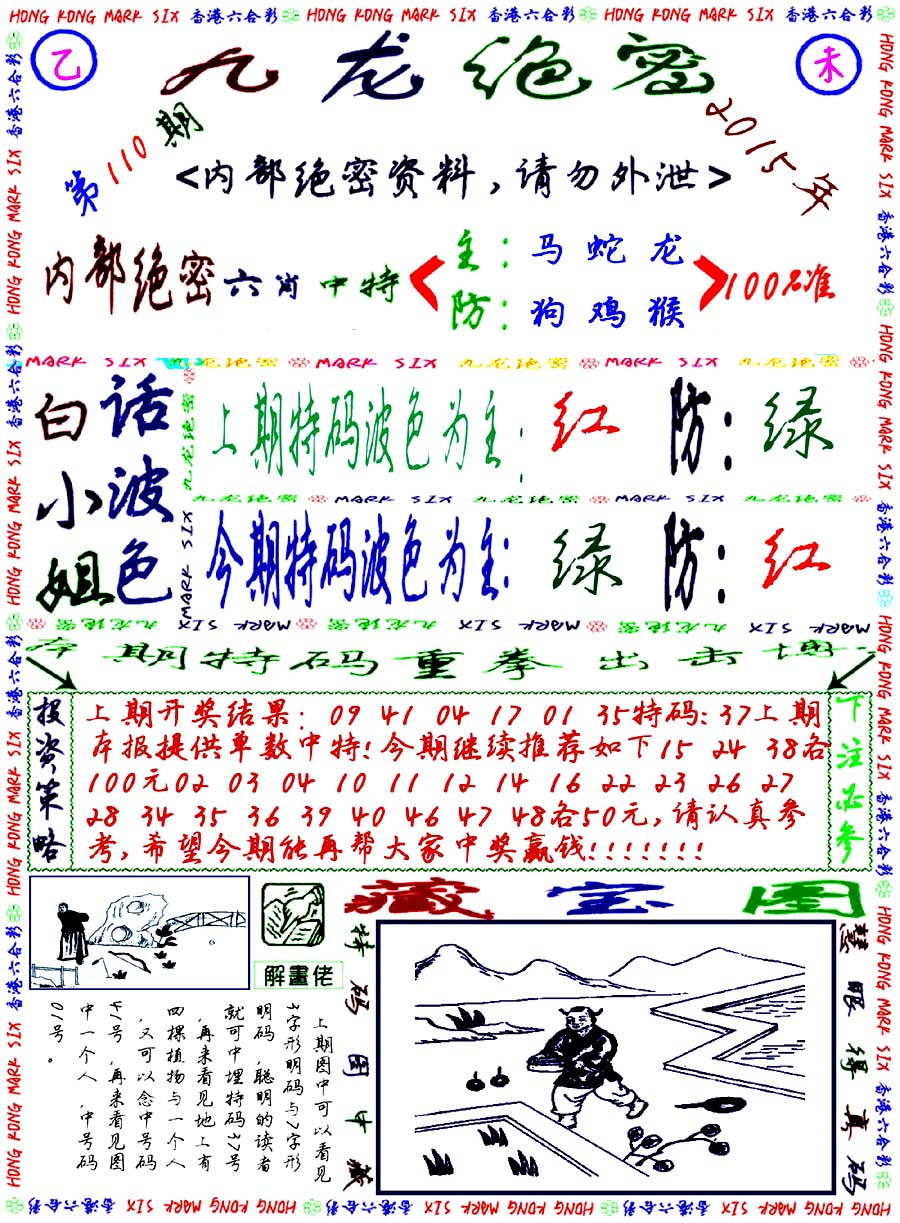 HONG KONG MARK SIX 香港六合彩 HONG KONG MARK SIX 香港六合彩 HONG KONG MARK SIX 香港六合彩
乙
九龙绝密
未
第110期
2015年
<内部绝密资料,请勿外泄>
内部绝密六肖中特
主:马蛇龙
防:狗鸡猴
100%准
MARK SIX 九龙绝密 MARK SIX 九龙绝密 MARK SIX 九龙绝密
白小姐
话波色
上期特码波色为主:红 防:绿
九龙绝密 MARK SIX 九龙绝密 MARK SIX 九龙绝密
今期特码波色为主:绿 防:红
九龙绝密 MARK SIX 九龙绝密 MARK SIX 九龙绝密 MARK SIX
本期特码重拳出击博
投资策略
上期开奖结果: 09 41 04 17 01 35特码:37上期
本报提供单数中特!今期继续推荐如下15 24 38各
100元02 03 04 10 11 12 14 16 22 23 26 27
28 34 35 36 39 40 46 47 48各50元,请认真参
考,希望今期能再帮大家中奖赢钱!!!!!!!
下注必参
藏宝图
解畫佬
特码图中藏
慧眼得真码
上期图中可以看见
3字形明码与7字形
明码,聪明的读者
就可中埋特码37号
,再来看见地上有
四棵植物与一个人
,又可以念中号码
41号,再来看见图
中一个人,中号码
01号。
HONG KONG MARK SIX 香港六合彩 HONG KONG MARK SIX 香港六合彩 HONG KONG MARK SIX 香港六合彩